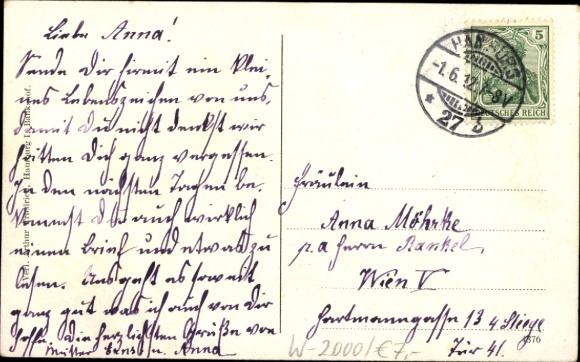 Liebe Anna!
Sende Dir hiermit ein klei-
nes Lebenszeichen von uns,
damit Du nicht denkst wir
hätten Dich ganz vergessen.
In den nächsten Tagen be-
kommst Du auch wirklich
einen Brief und etwas zu
lesen. Uns geht es soweit
ganz gut was ich auch von Dir
hoffe. Die herzlichsten Grüße von
Mutter Ernst u. Anna
HAMBURG
-1.6.12. 7-8V
* 27 b
5
DEUTSCHES REICH
Fräulein
Anna Möhrke
p.a Herrn Bankel,
Wien V
Hartmanngasse 13 4 Stiege
Tür 41.
4376
W-2000/€7,-
Hamburg